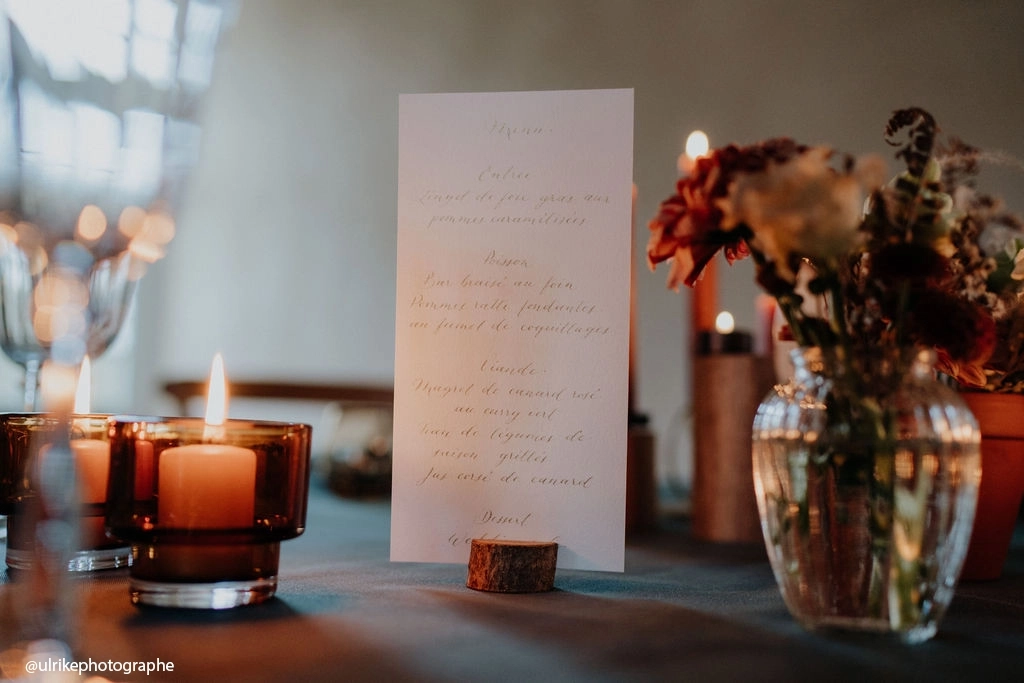 Menu
Entrée
de foie gras aux
pommes caramélisées
Poisson
Bar braisé au foin
Pommes ratte fondantes
au fumet de coquillages
Viande
Magret de canard rosé
au curry vert
de légumes de
saison grillés
Jus corsé de canard
Dessert
@ulrikephotographe